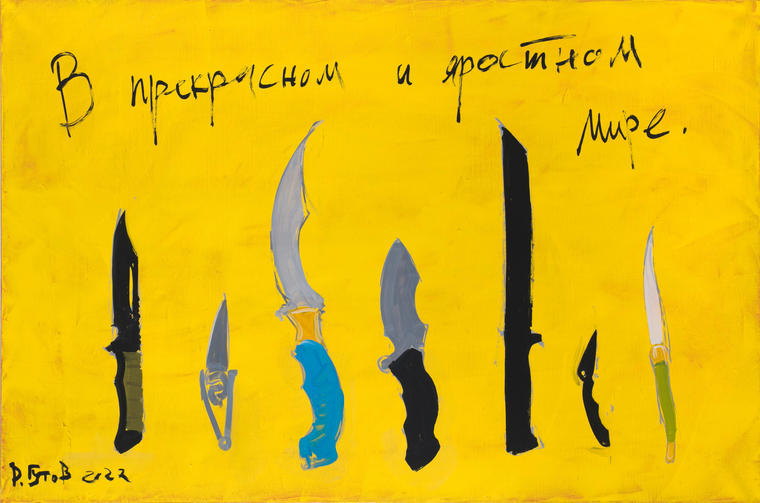 В прекрасном и яростном
мире.
Д. Гутов 2022